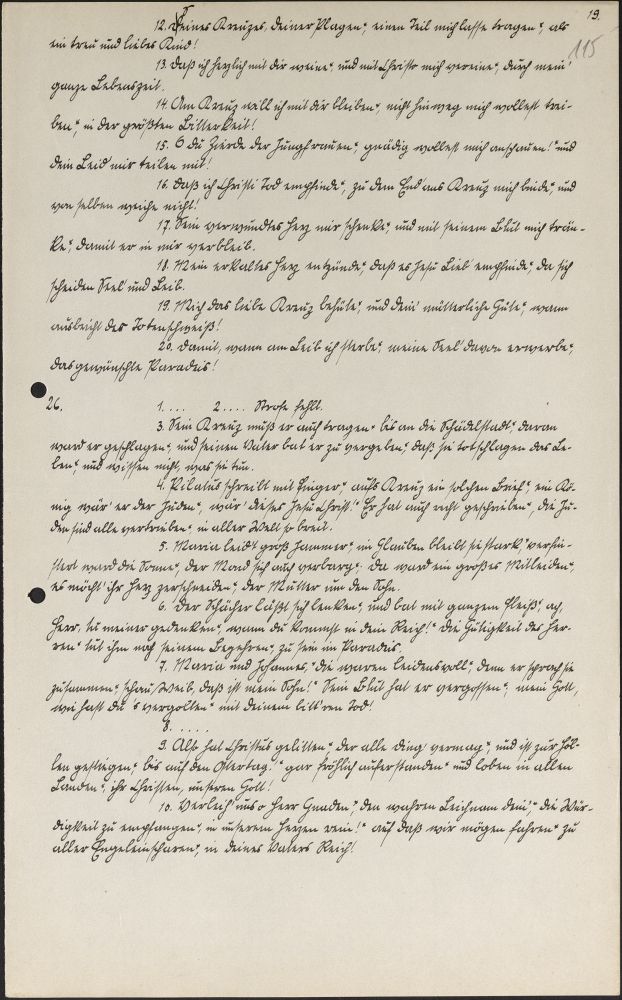 19.
115
12. Deines Kreuzes, deiner Plagen", einen Teil mich lasse tragen", als
ein treu und liebes Kind!
13. Daß ich herzlich mit dir weine", und mit Christo mich vereine", durch mein'
ganze Lebenszeit.
14. Am Kreuz will ich mit dir bleiben", nicht hinweg mich wollest trei-
ben", in der größten Bitterkeit!
15. O du Zierde der Jungfrauen", gnädig wollest mich anschauen!" und
dein Leid mir teilen mit!
16. Daß ich Christi Tod empfinde", zu dem End ans Kreuz mich binde", und
von selben weiche nicht!
17. Sein verwundtes Herz mir schenke", und mit seinem Blut mich trän-
ke", damit er in mir verbleib.
18. Mein erkaltes Herz entzünde", daß es Jesu Lieb' empfinde", da sich
scheiden Seel' und Leib.
19. Mich das liebe Kreuz behüte", und dein' mütterliche Güte", wann
ausbricht der Totenschweiß!
20. Damit, wann am Leib ich sterbe", meine Seel' davon erwerbe",
das gewünschte Paradeis!
26. 1. ... 2. ... Strofe fehlt.
3. Sein Kreuz muß er auch tragen" bis an die Schädelstadt", daran
ward er geschlagen", und seinen Vater bat er zu vergeben", daß sie totschlagen das Le-
ben", und wissen nicht, was sie tun.
4. Pilatus schreibt mit Finger", aufs Kreuz ein solchen Brief", ein Kö-
nig wär' er der Juden", wär' dieser Jesu Christ!" Er hat auch recht geschrieben", die Ju-
den sind alle vertrieben", in aller Welt so breit.
5. Maria leidt groß Jammer", im Glauben bleibt sie stark", verfin-
stert ward die Sonne", der Mond sich auch verbarg", da ward ein großes Mitleiden",
es möcht' ihr Herz zerschneiden", der Mutter um den Sohn.
6. Der Schächer läßt sich lenken", und bat mit ganzem Fleiß", ach,
Herr, tu meiner gedenken", wann du kommst in dein Reich!" Die Gütigkeit des Her-
ren" tut ihm nach seinem Begehren", zu sein im Paradeis.
7. Maria und Johannes", die waren leidensvoll", denn er sprach sie
zusammen", schau, Weib, daß ist mein Sohn!" Sein Blut hat er vergossen", mein Gott,
wie hast du's vergolten" mit deinem bitt'ren Tod!
8. ....
9. Also hat Christus gelitten", der alle Ding' vermag", und ist zur Höl-
len gestiegen", bis auf den Ostertag!" gar fröhlich auferstanden" und loben in allen
Landen", ihr Christen, unseren Gott!
10. Verleih' uns o Herr Gnaden", den wahren Leichnam dein'", die Wür-
digkeit zu empfangen", in unserem Herzen rein!" auf daß wir mögen fahren" zu
aller Engeleinscharen", in deines Vaters Reich!